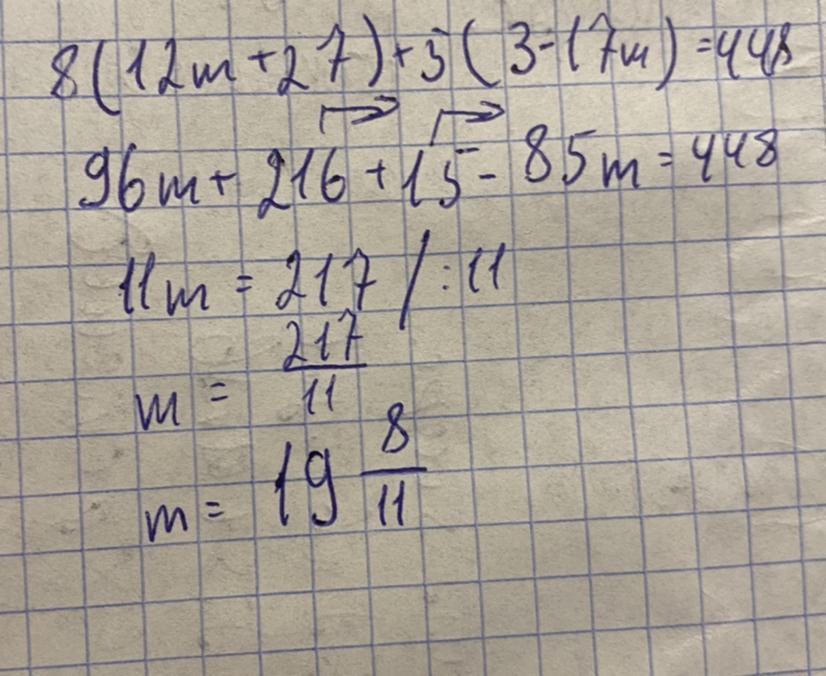 8(12m+27)+5(3-17m)=448
96m+216+15-85m=448
11m=217/:11
m=217/11
m=19 8/11